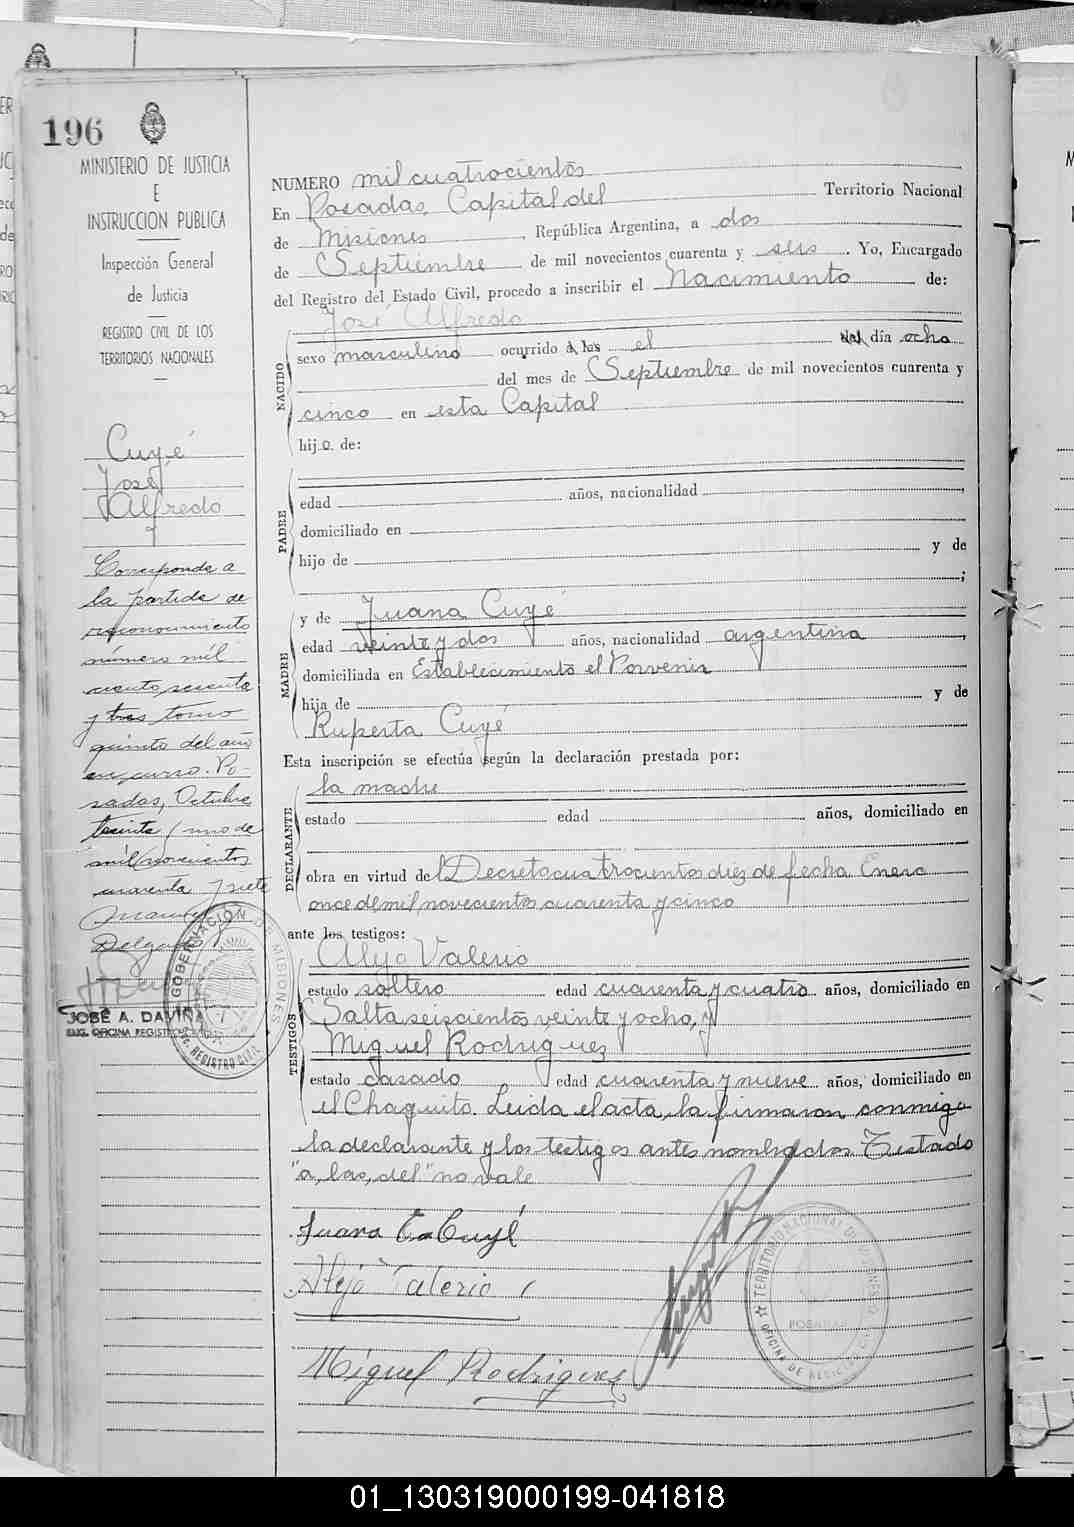 196
MINISTERIO DE JUSTICIA
E
INSTRUCCION PUBLICA
Inspección General
de Justicia
REGISTRO CIVIL DE LOS
TERRITORIOS NACIONALES
Cuyé
José
Alfredo
Corresponde a
la partida de
reconocimiento
número mil
ciento sesenta
y tres tomo
quinto del año
en curso. Po-
sadas, Octubre
treinta y uno de
mil novecientos
cuarenta y siete
Manuel
Delgado
JOSÉ A. DAVIÑA
ENC. OFICINA REGISTRO
GOBERNACIÓN DE MISIONES
REGISTRO CIVIL
NUMERO mil cuatrocientos
En Posadas, Capital del Territorio Nacional
de Misiones, República Argentina, a dos
de Septiembre de mil novecientos cuarenta y seis. Yo, Encargado
del Registro del Estado Civil, procedo a inscribir el Nacimiento de:
José Alfredo
NACIDO
sexo masculino ocurrido a las el del día ocho
del mes de Septiembre de mil novecientos cuarenta y
cinco en esta Capital
hijo de:
PADRE
edad años, nacionalidad
domiciliado en
hijo de y de
;
MADRE
y de Juana Cuyé
edad veinte y dos años, nacionalidad argentina
domiciliada en Establecimiento el Porvenir
hija de y de
Ruperta Cuyé
Esta inscripción se efectúa según la declaración prestada por:
DECLARANTE
la madre
estado edad años, domiciliado en
obra en virtud del Decreto cuatrocientos diez de fecha Enero
once de mil novecientos cuarenta y cinco
ante los testigos:
TESTIGOS
Alejo Valerio
estado soltero edad cuarenta y cuatro años, domiciliado en
Salta seiscientos veinte y ocho, y
Miguel Rodriguez
estado casado edad cuarenta y nueve años, domiciliado en
el Chaquito. Leida el acta, la firmaron conmigo
la declarante y los testigos antes nombrados. Testado
"a, las, del" no vale
Juana Cuyé
Alejo Valerio
Miguel Rodriguez
TERRITORIO NACIONAL DE MISIONES
POSADAS
OFICINA DE REGISTRO CIVIL
01_130319000199-041818